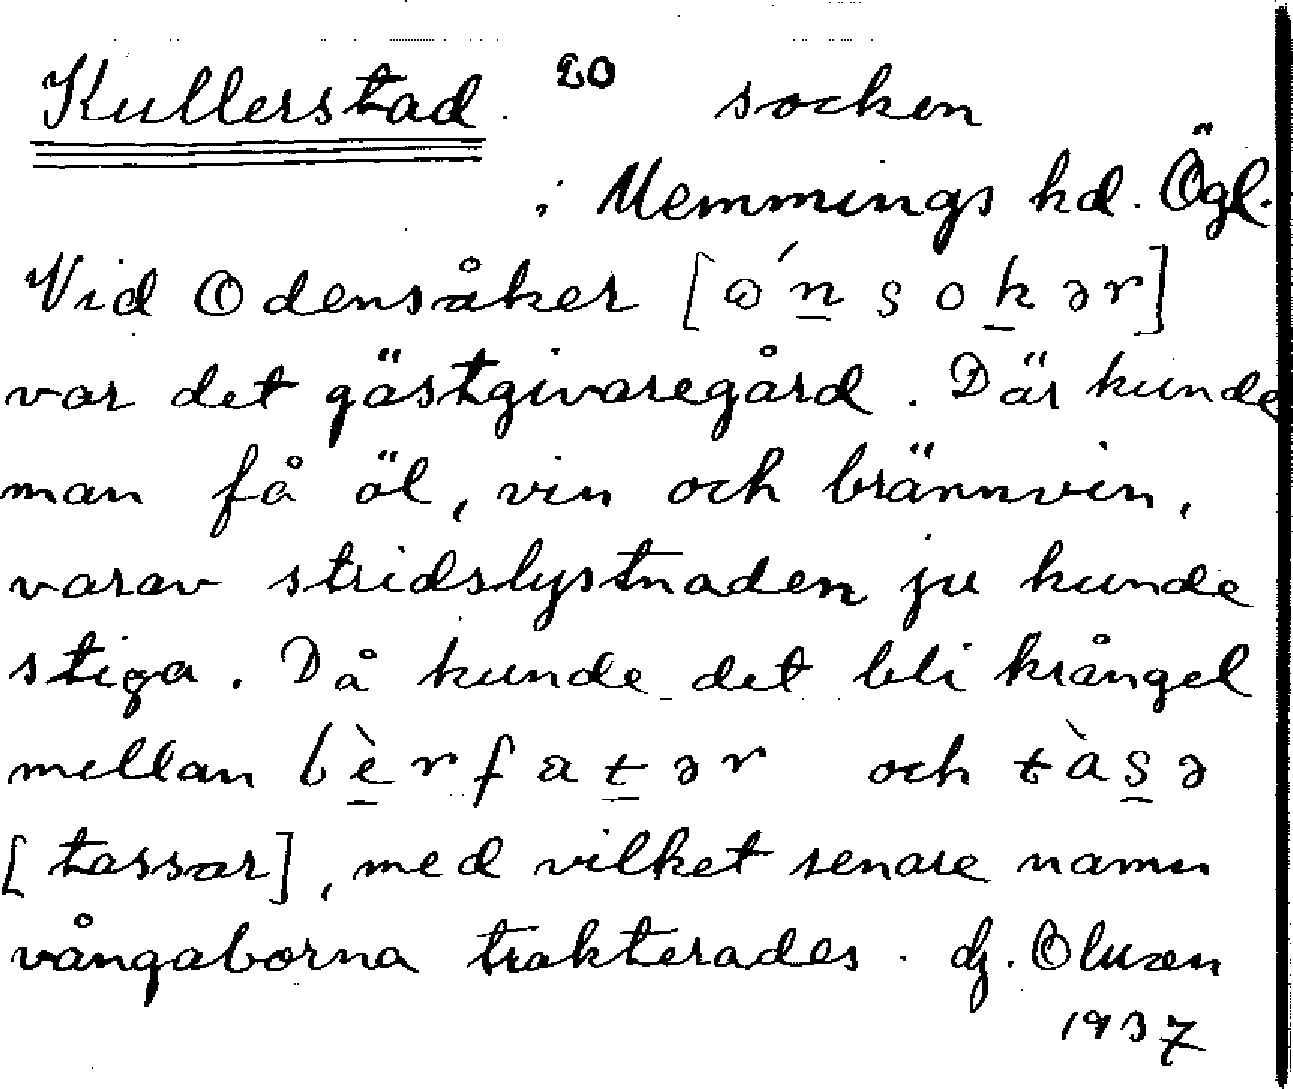 Kullerstad 20 socken
i Memmings hd. Ögl.
Vid Odensåker [ǫ́n̲sok̲ər]
var det gästgivaregård. Där kunde
man få öl, vin och brännvin,
varav stridslystnaden ju kunde
stiga. Då kunde det bli krångel
mellan bè̲rfat̲ər och tàs̲ə
[tassar], med vilket senare namn
vångaborna trakterades. Hj. Oluxen
1937